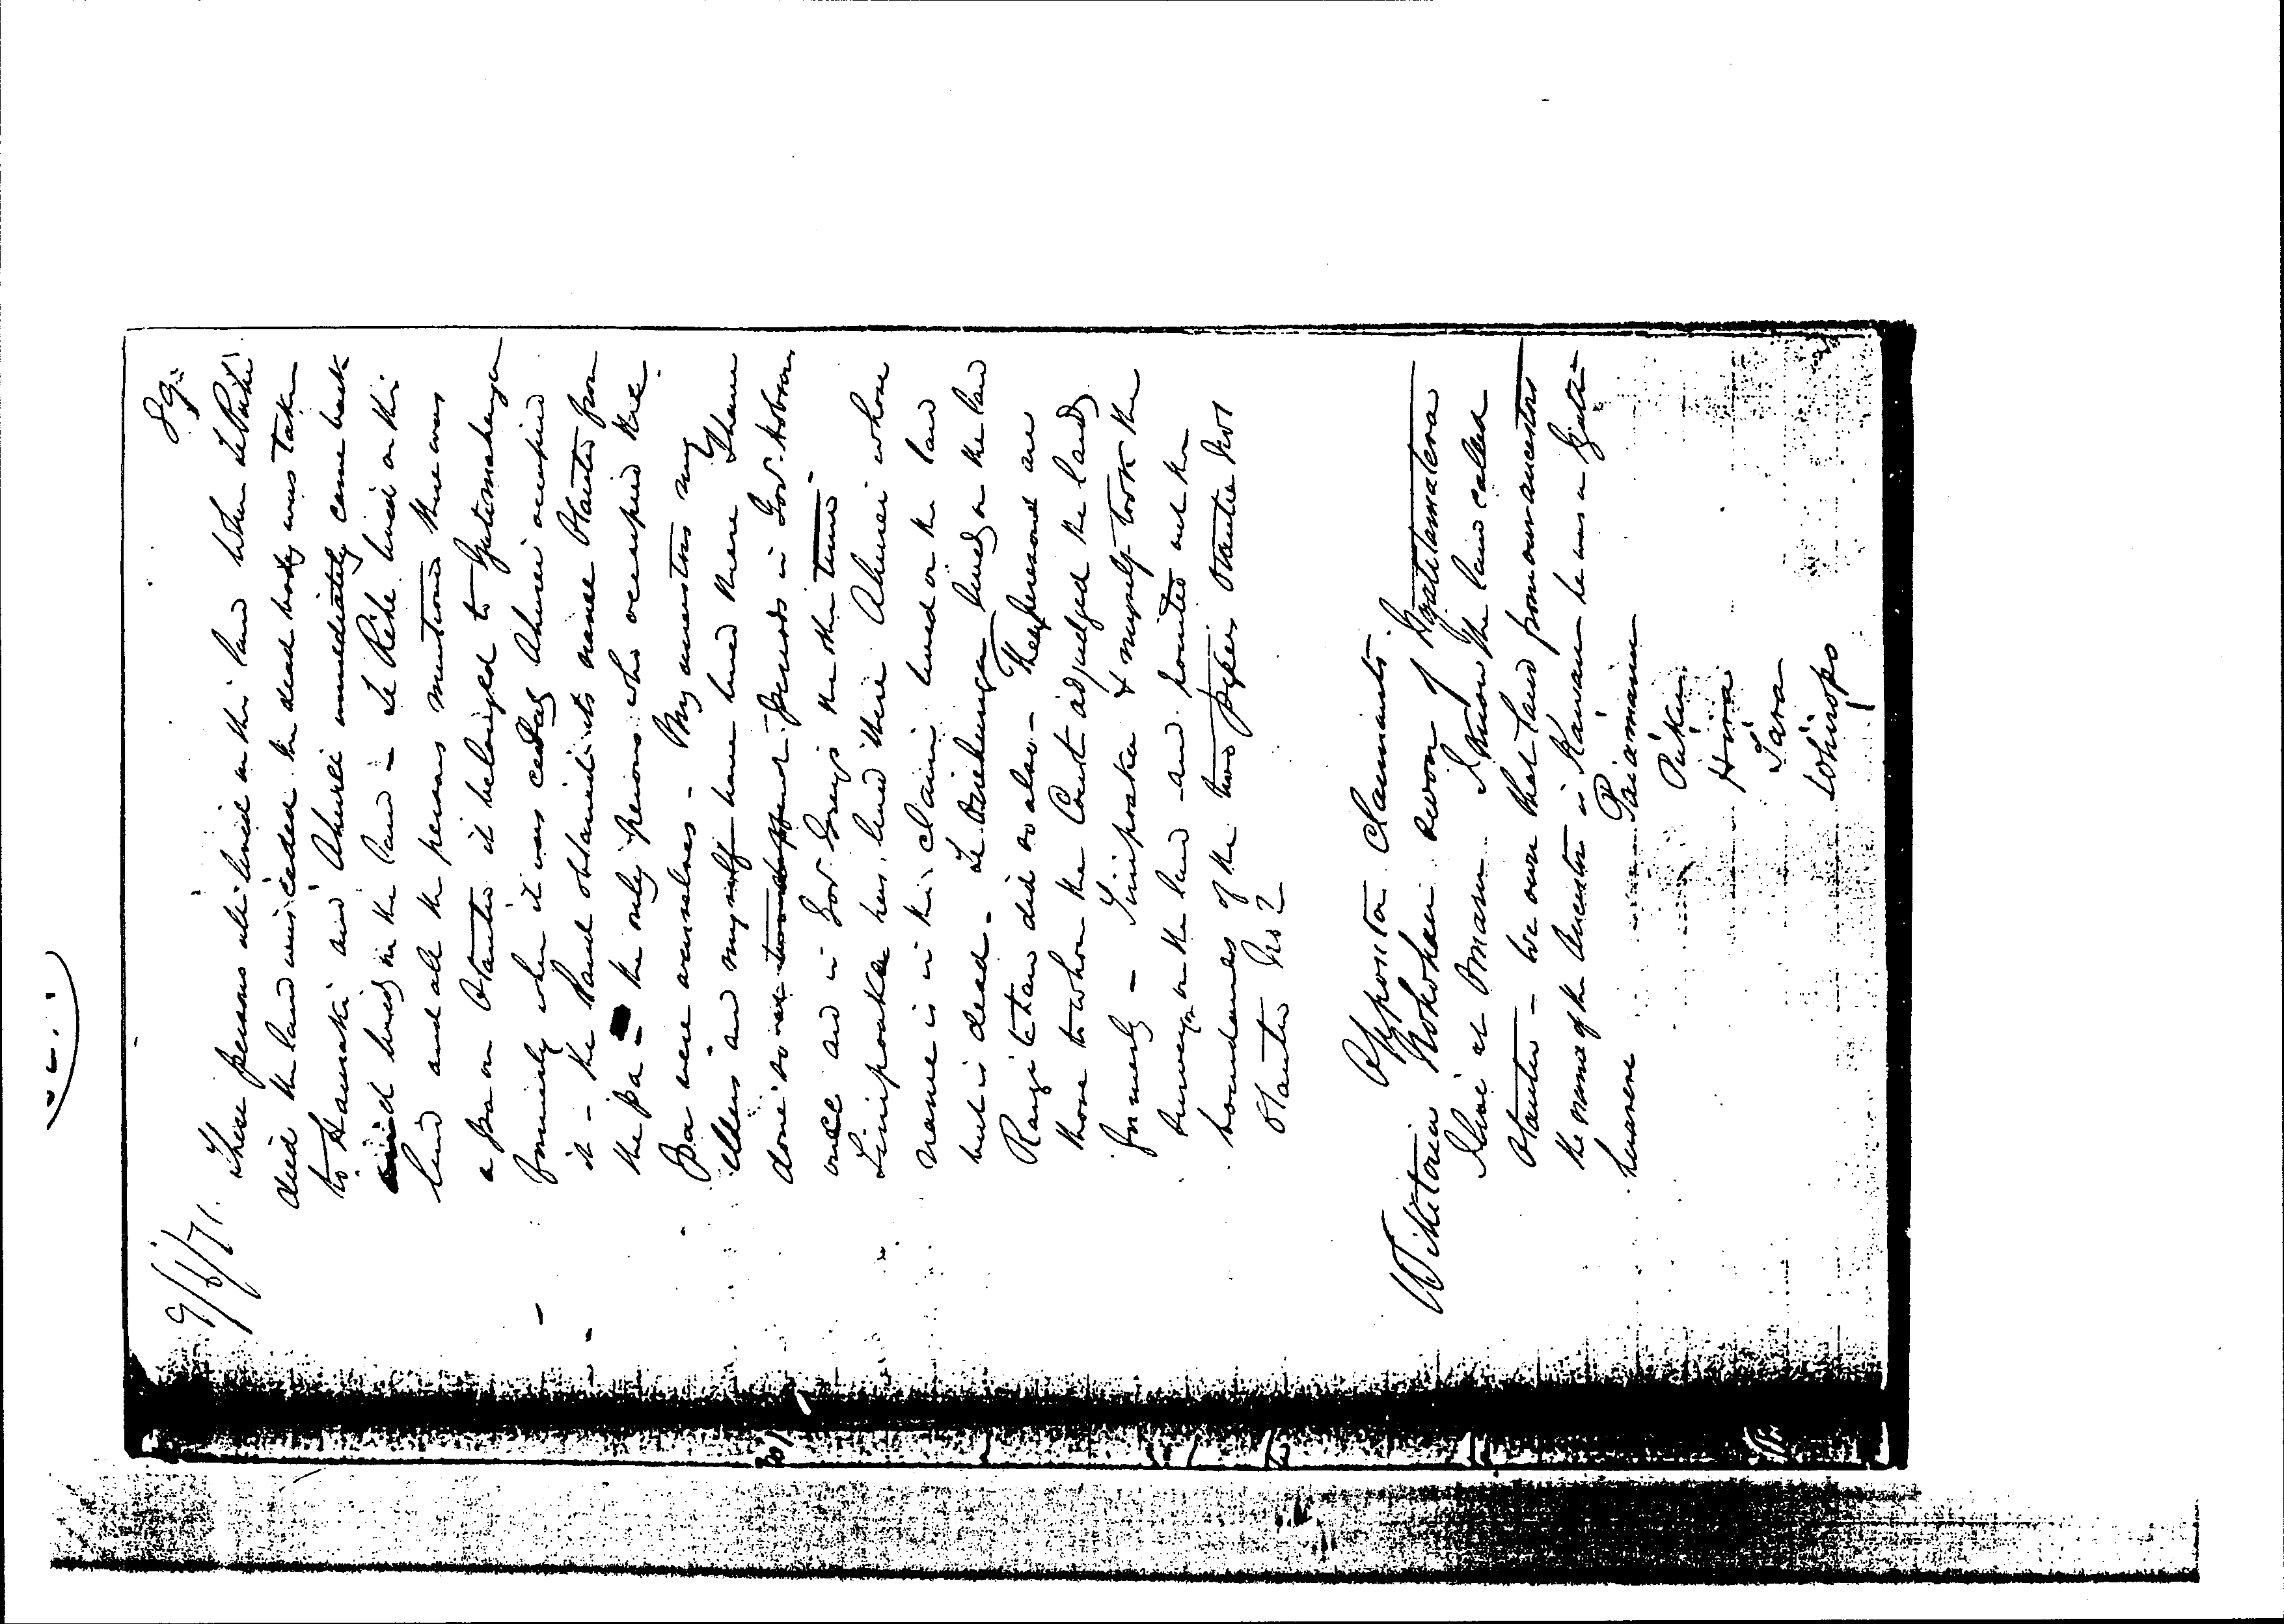 9/6/71. 89.
These persons all lived on this land when Te Puke
died the land was ceded the dead body was taken
to Hauraki and Ahurei immediately came back
and lived on the land - Te Reke lived on this
land and all the persons mentioned there was
a pa on Otautu it belonged to Ngatimahanga
formerly when it was ceded Ahurei occupied
it - the land obtained its name Otautu from
the pa - the only persons who occupied the
Pa were ourselves - My ancestors my
elders and myself have lived there I have
done so in Gov. Hobson
once and in Gov Greys the other time
Tiniponaka has lived there Ahurei whose
name is in the claim lived on the land
but is dead - lived on the land
Rangi did so also - These persons are
those to whom the Court adjudged the land
formerly - & myself took the
survey on the land and pointed out the
boundaries of the two pieces Otautu No 1
Otautu No 2
Opposition Claimants.
Wikitoria sworn of Ngatitamatera
I live at Omaru I know the land called
Otautu - we own that land from our ancestors
the name of the Ancestor is he was a Ngati
Paiamanu
Pukeu
Hira
Tara
Whiropo